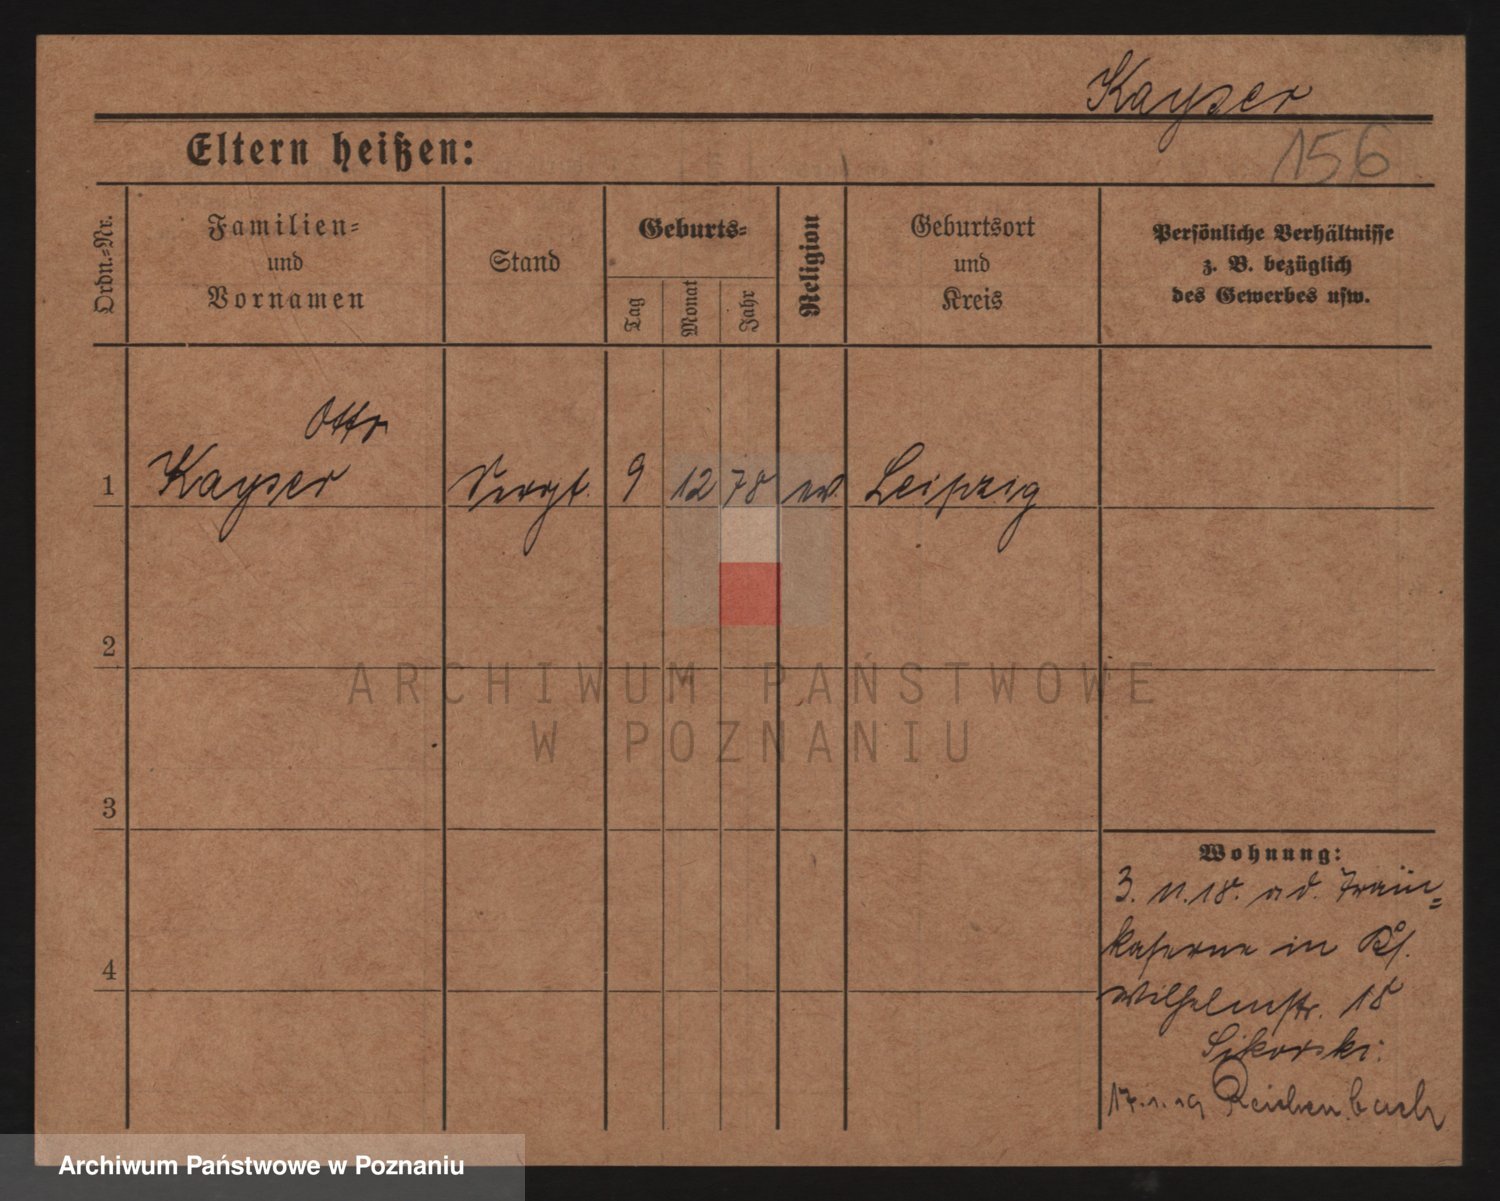 Kayser
Eltern heißen:
156
Ordn.-Nr.
Familien-
und
Vornamen
Stand
Geburts-
Tag
Monat
Jahr
Religion
Geburtsort
und
Kreis
Persönliche Verhältnisse
z. B. bezüglich
des Gewerbes usw.
Otto
1 Kayser Sergt. 9 12 78 ev. Leipzig
2
ARCHIWUM PAŃSTWOWE
W POZNANIU
3
Wohnung:
3. 11. 18. a d. Train-
kaserne in
4
Wilhelmstr. 18
Sikorski.
17. 1. 19 Reichenbach
Archiwum Państwowe w Poznaniu